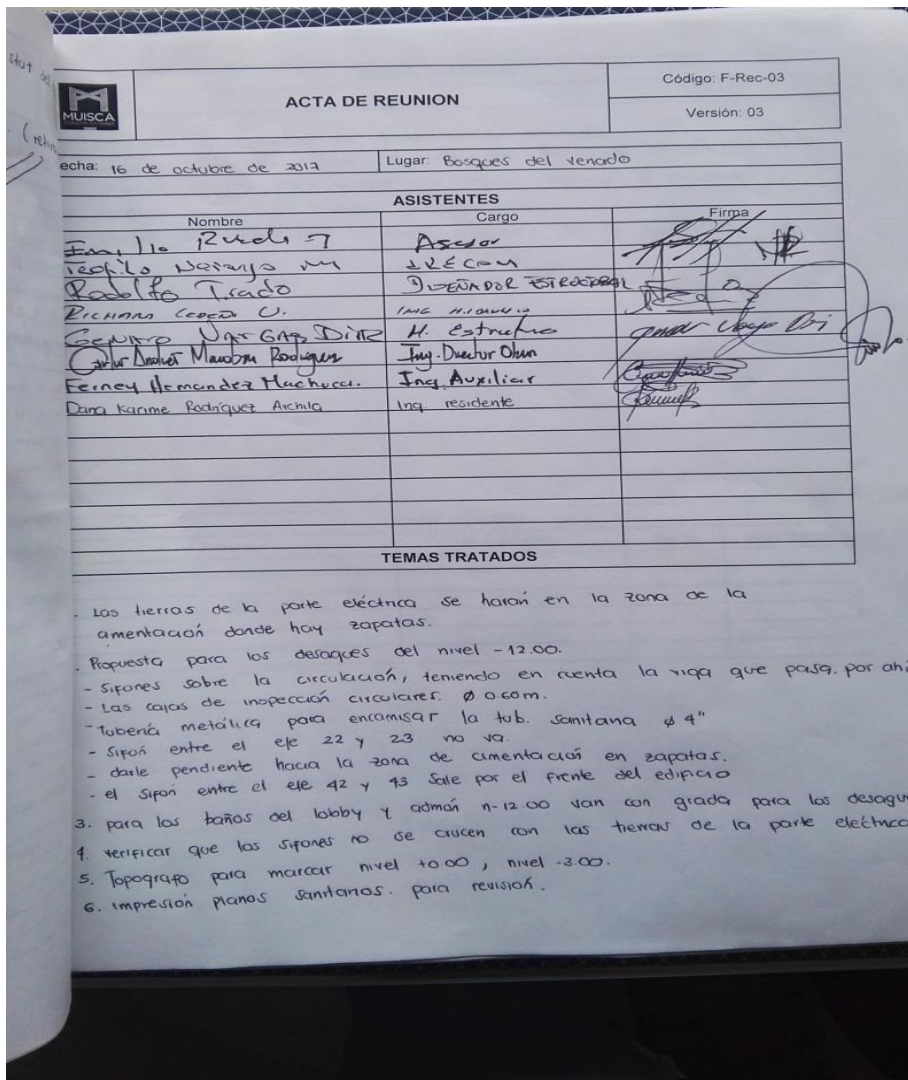 MUISCA
ACTA DE REUNION
Código: F-Rec-03
Versión: 03
echa: 16 de octubre de 2017
Lugar: Bosques del Venado
ASISTENTES
Nombre Cargo Firma
Asesor
Teofilo Naranjo
Rodolfo Tirado DISEÑADOR
Richard Cedeño U.
Genaro Vargas Diaz
Ing. Director
Ferney Hernandez Machuca. Ing Auxiliar
Dana Karime Rodríguez Archila Ing. residente
TEMAS TRATADOS
. Las tierras de la parte eléctrica se harán en la zona de la
cimentación donde hay zapatas.
. Propuesta para los desagues del nivel -12.00.
- Sifones sobre la circulación, teniendo en cuenta la viga que pasa. por ahí
- Las cajas de inspección circulares. ø 0.60m.
- Tubería metálica para encamisar la tub. sanitaria ø 4"
- Sifón entre el eje 22 y 23 no va.
- darle pendiente hacia la zona de cimentación en zapatas.
- el sifón entre el eje 42 y 43 sale por el frente del edificio
3. para los baños del lobby y admón n-12.00 van con grada para los desagu
4. verificar que los sifones no se crucen con las tierras de la parte eléctrica
5. Topografo para marcar nivel +0.00, nivel -3.00.
6. impresión planos sanitarios. para revisión.